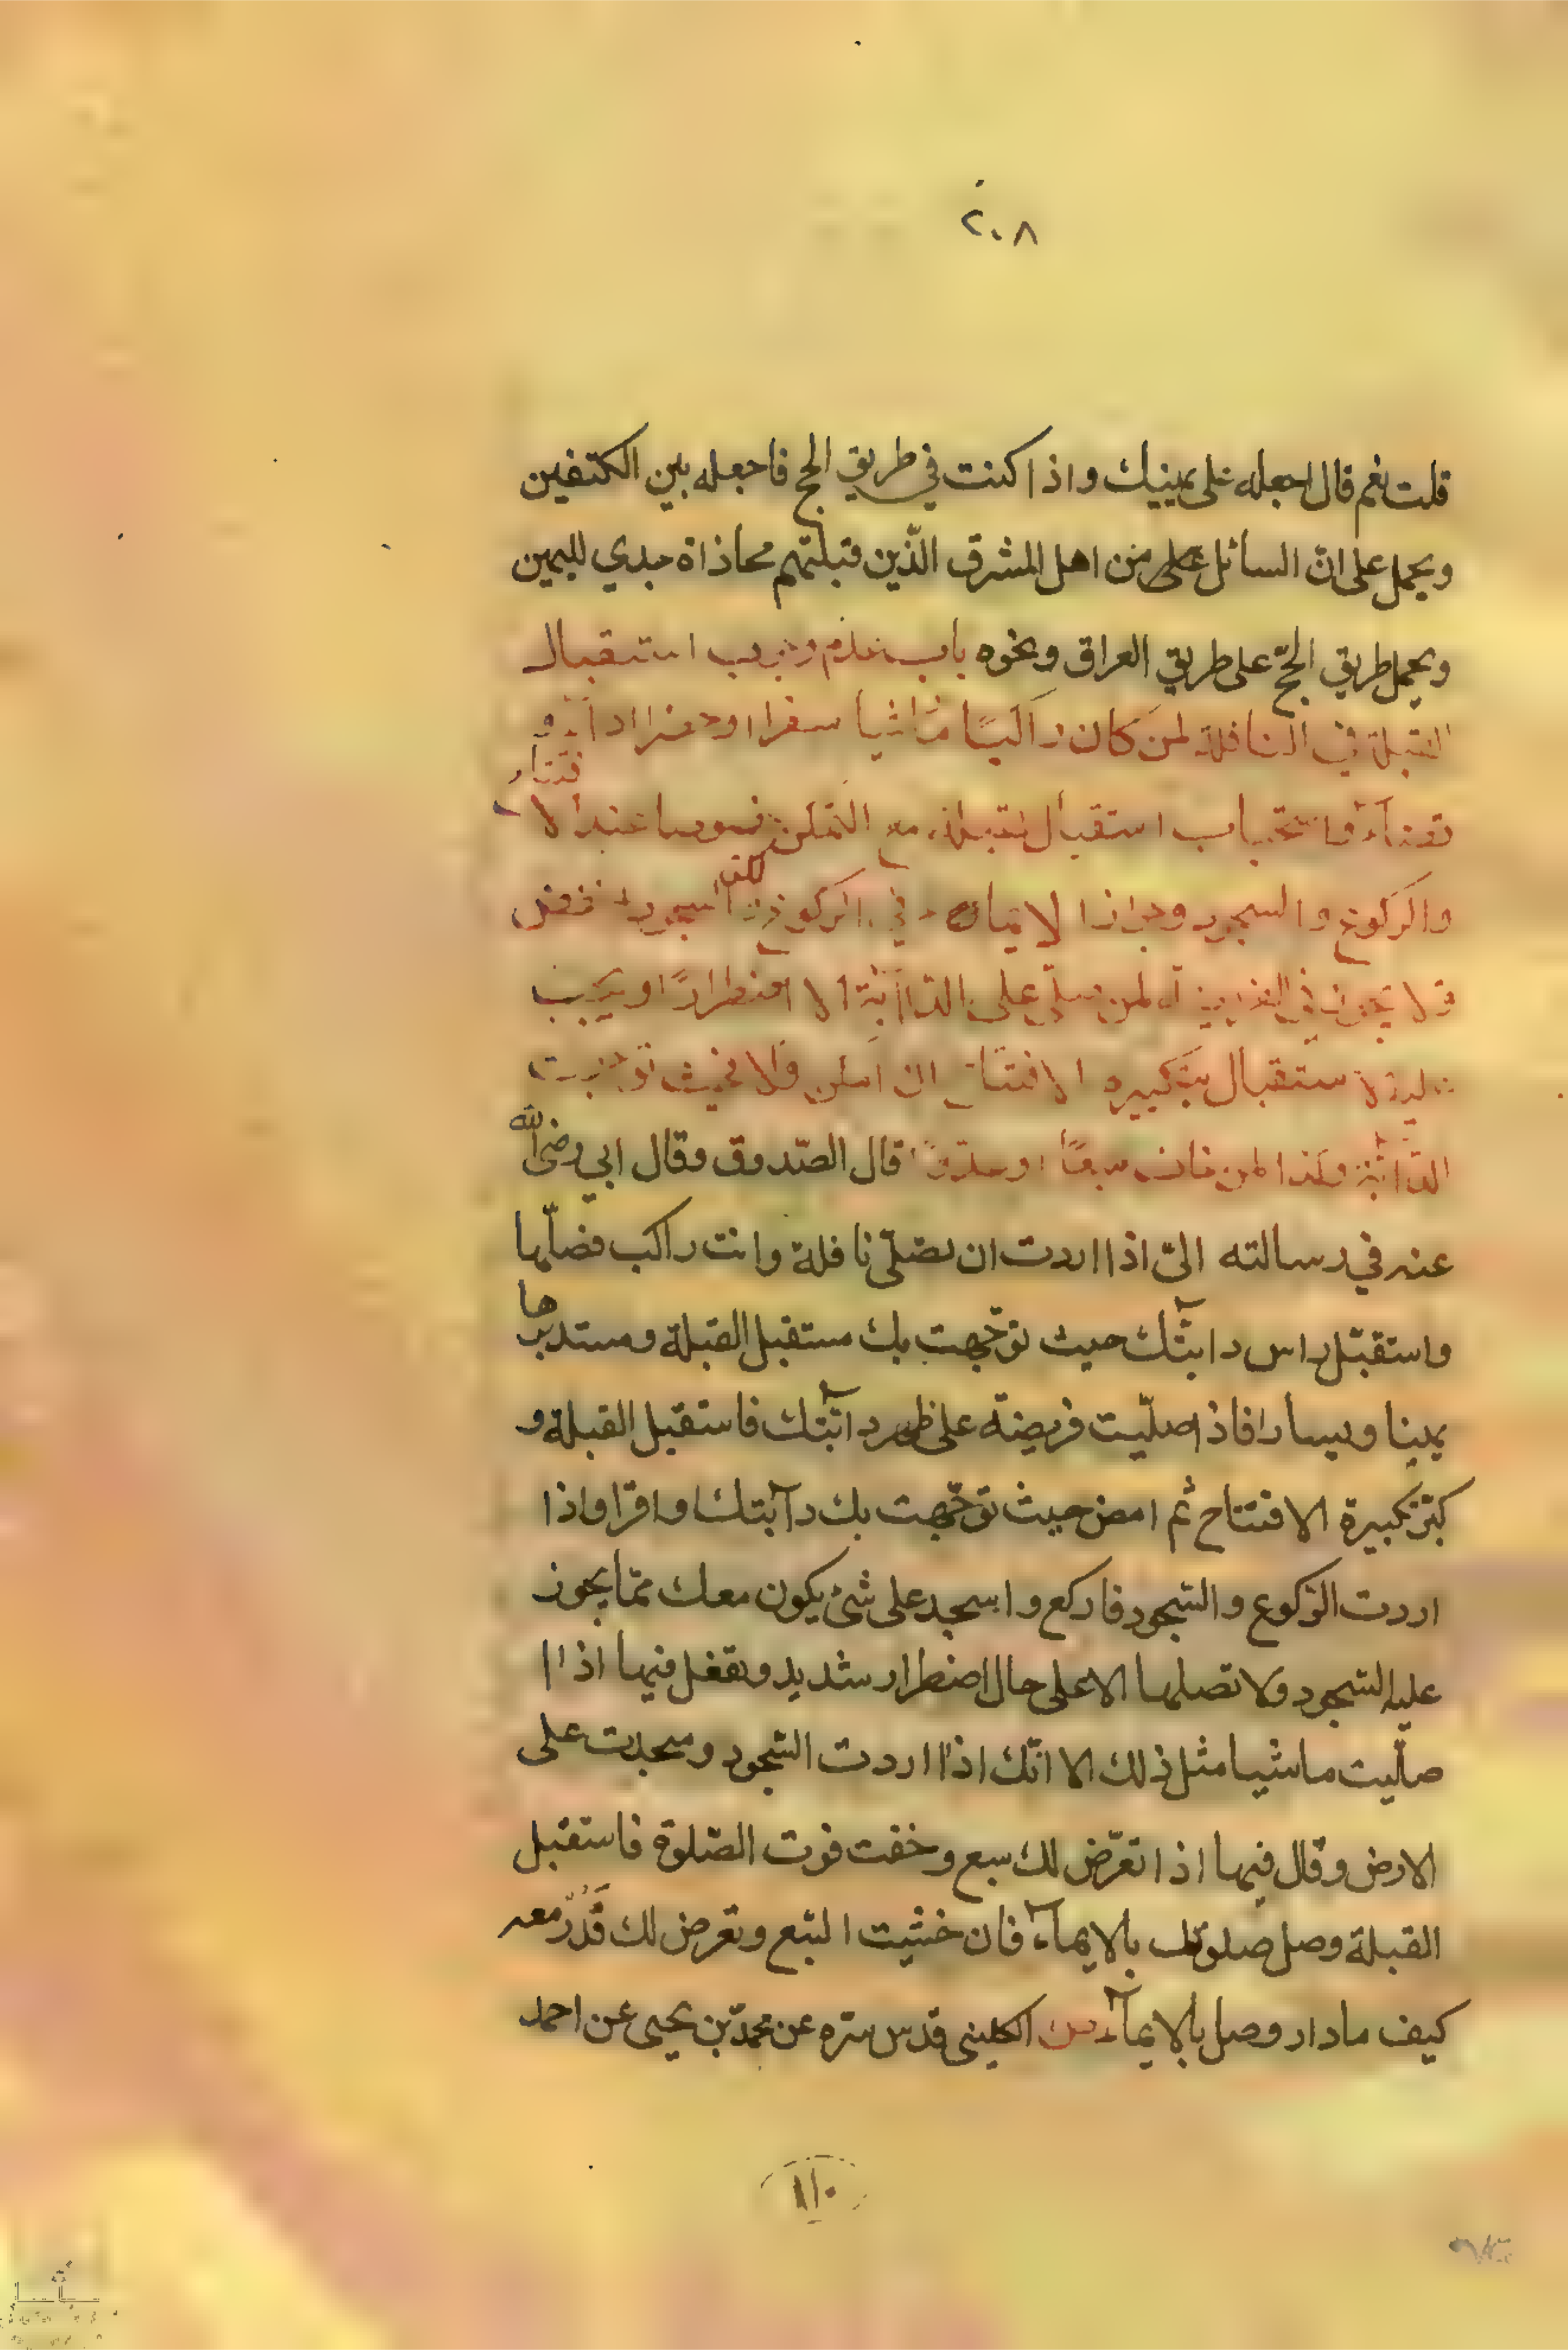 ٢٠٨
قلت نعم قال اجعله على يمينك واذا كنت في طريق الحج فاجعله بين الكتفين
ويحمل على انّ السائل على من اهل المشرق الّذين قبلتهم محاذاة جدي لليمين
ويحمل طريق الحجّ على طريق العراق ونحوه باب عدم وجوب استقبال
القبلة في النافلة لمن كان راكبًا ماشيا سفرا او حضرا اداء و
قضاء واستحباب استقبال القبلة مع التمكن خصوصا عند الافتتاح
والركوع والسجود وجواز الايماء في الركوع والسجود اخفض
ولا يجوز في الفريضة لمن يصلّي على الدابّة الا اضطرارًا او يجب
عليه الاستقبال بتكبيره الافتتاح ان امكن والا فحيث توجهت
الدابّة وكذا لمن خاف سبعًا او عدوًّا قال الصّدوق وقال ابي رضي الله
عنه في رسالته اليّ اذا اردت ان تصلّي نافلة وانت راكب فصلّها
واستقبل راس دابّتك حيث توجّهت بك مستقبل القبلة ومستدبرها
يمينا ويسارا فاذا صلّيت فريضة على ظهر دابّتك فاستقبل القبلة و
كبّر تكبيرة الافتتاح ثم امض حيث توجّهت بك دآبّتك واقرا واذا
اردت الرّكوع والسّجود فاركع واسجد على شئ يكون معك ممّا يجوز
عليه السّجود ولا تصلها الا على حال اضطرار شديد وتفعل فيها اذا
صلّيت ماشيا مثل ذلك الا انّك اذا اردت السّجود وسجدت على
الارض وقال فيها اذا تعرّض لك سبع وخفت فوت الصّلوة فاستقبل
القبلة وصل صلوتك بالايمآء فان خشيت السّبع وتعرض لك فَدُرْ معه
كيف مادار وصل بالايمآء الكليني قدس سرّه عن محمّد بن يحيى عن احمد
١١٠